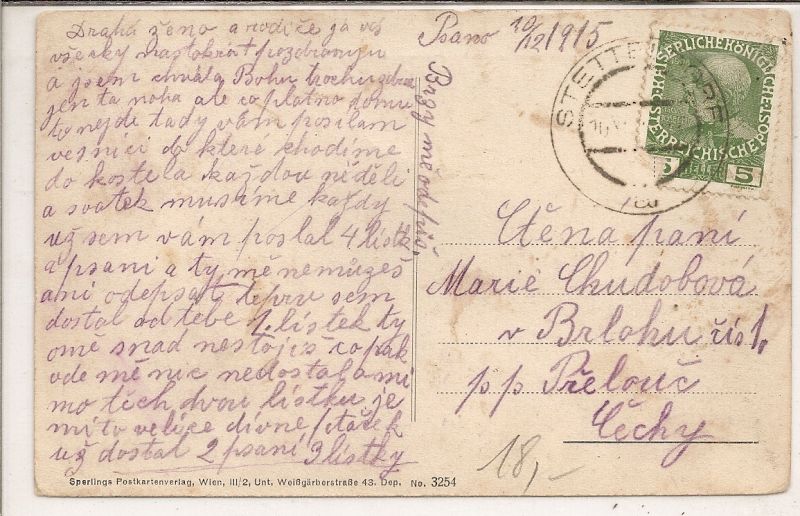 Drahá ženo a rodiče já vás
všecky nastokrát pozdravuju
a jsem chvála Bohu trochu zdráv
jen ta noha ale co platno domu
to nejde tady vám posílam
vesnici do ktere chodíme
do kostela každou neděli
a svatek musíme každy
už sem vám poslal 4 lístky
a psani a ty mě nemůžeš
ani odepsat teprv sem
dostal od tebe 1. lístek ty
omě snad nestojiš copak
ode mě nic nedostala mi
mo těch dvou lístku je
mi to velice divné
už dostal 2 psaní 3 lístky
Psano 10/12 1915
Brzy mě odepiš
STETTELDORF
KAISERLICHE KÖNIGLICHE ÖSTERREICHISCHE POST
5 HELLER 5
Ctěna paní
Marie Chudobová
v Brlohu čís 1.
pp Přelouč
Čechy
18,-
Sperlings Postkartenverlag, Wien, III/2, Unt. Weißgärberstraße 43. Dep. No. 3254